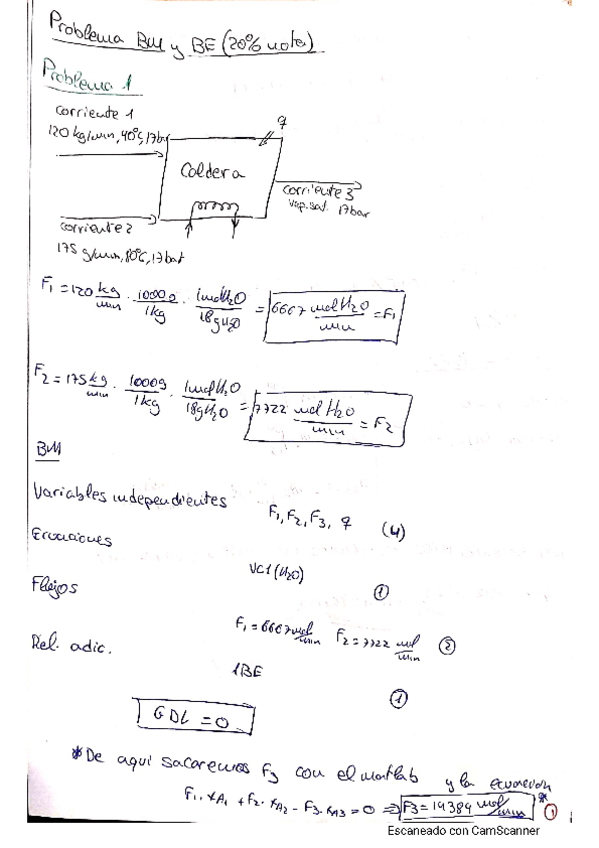 Problema BM y BE (20% nota)
Problema 1
corriente 1
120 kg/min, 40ºC, 17bar
q
Caldera
corriente 3
Vap. sat. 17bar
corriente 2
175 g/min, 80ºC, 17bar
F1 = 120 kg/min · 1000g/1kg · 1molH2O/18gH2O = 6667 molH2O/min = F1
F2 = 175 kg/min · 1000g/1kg · 1molH2O/18gH2O = 7722 mol H2O/min = F2
BM
Variables independientes F1, F2, F3, q (4)
Ecuaciones
VC1 (H2O) 1
Flujos
F1 = 6667 mol/min F2 = 7722 mol/min 2
Rel. adic.
1BE 1
GDL = 0
*De aquí sacaremos F3 con el matlab y la ecuación
F1·xA1 + F2·xA2 - F3·xA3 = 0 => F3 = 14384 mol/min * 1
Escaneado con CamScanner